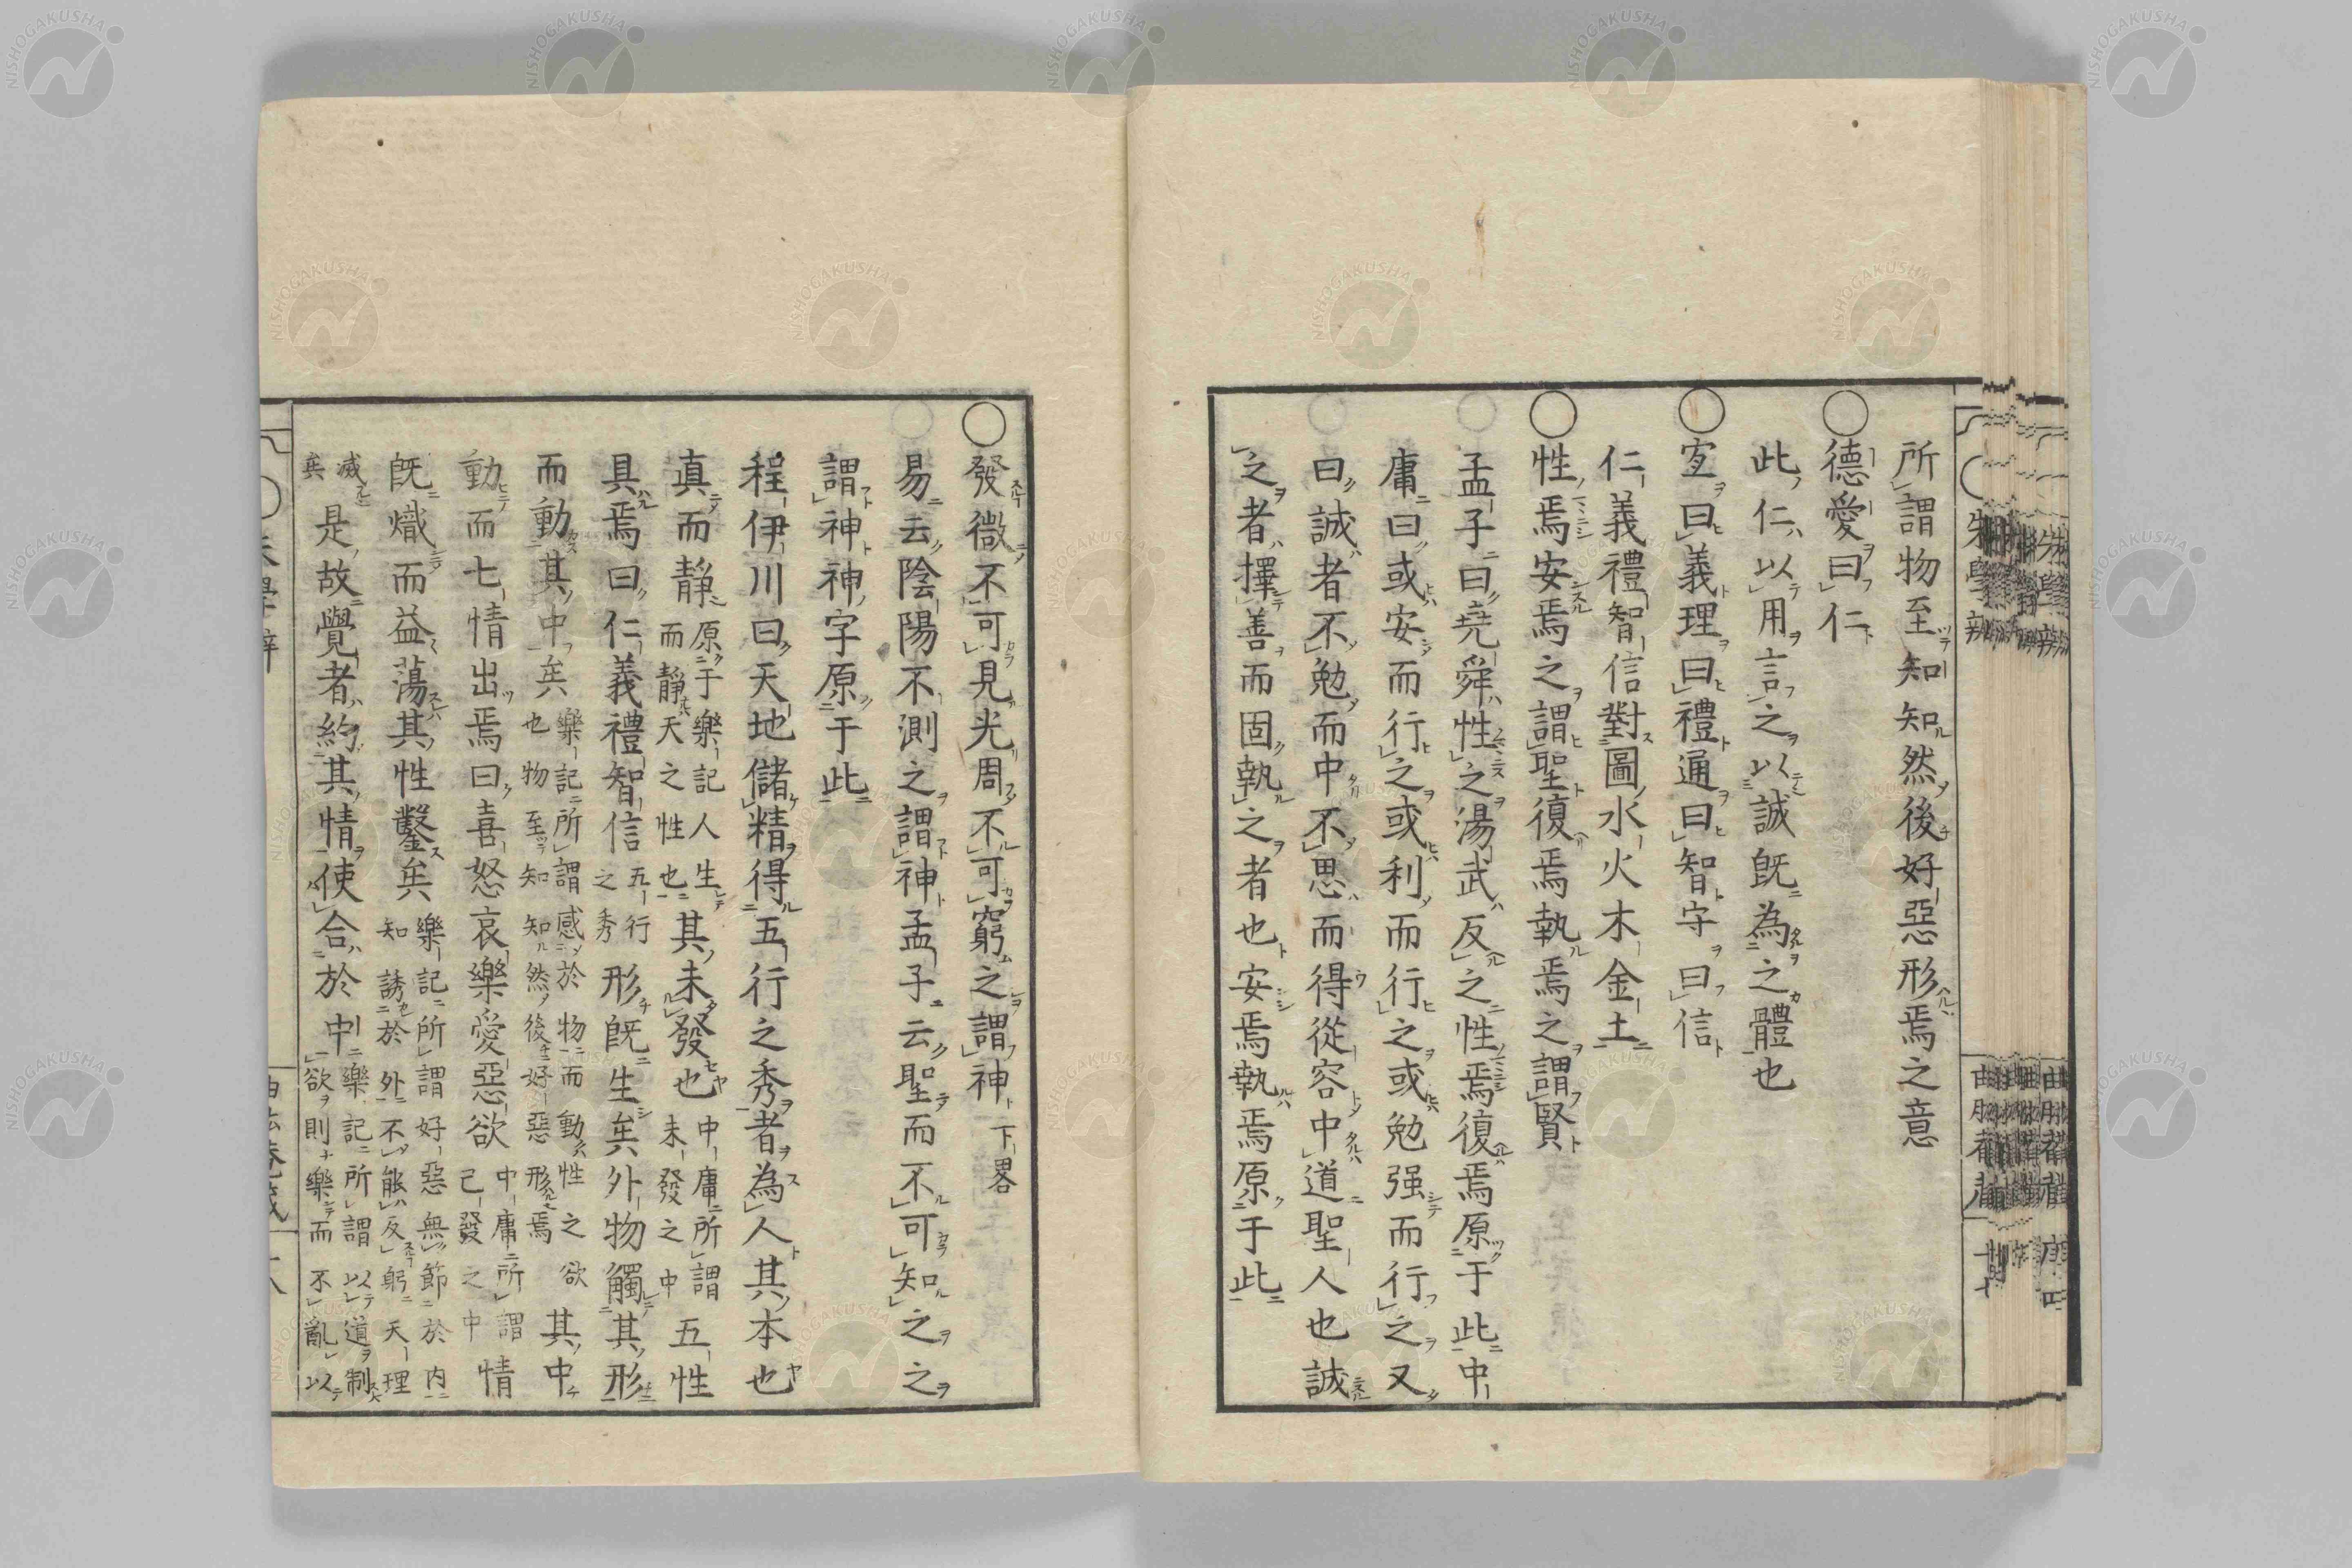 所謂物至知知然後好惡形焉之意
○德愛曰仁
此仁以用言之以誠既為之體也
○宐曰義理曰禮通曰智守曰信
仁義禮智信對圖水火木金土
○性焉安焉之謂聖復焉執焉之謂賢
孟子曰堯舜性之湯武反之性焉復焉原于此中
庸曰或安而行之或利而行之或勉强而行之又
曰誠者不勉而中不思而得從容中道聖人也誠
之者擇善而固執之者也安焉執焉原于此
○發微不可見光周不可窮之謂神下畧
易云陰陽不測之謂神孟子云聖而不可知之之
謂神神字原于此
程伊川曰天地儲精得五行之秀者為人其本也
真而靜原于樂記人生而靜天之性也其未發也中庸所謂未發之中五性
具焉曰仁義禮智信五行之秀形既生矣外物觸其形
而動其中矣樂記所謂感於物而動性之欲也物至知知然後好惡形焉其中
動而七情出焉曰喜怒哀樂愛惡欲中庸所謂已發之中情
既熾而益蕩其性鑿矣樂記所謂好惡無節於内知誘於外不能反躬天理
滅矣是故覺者約其情使合於中樂記所謂以道制欲則樂而不亂以